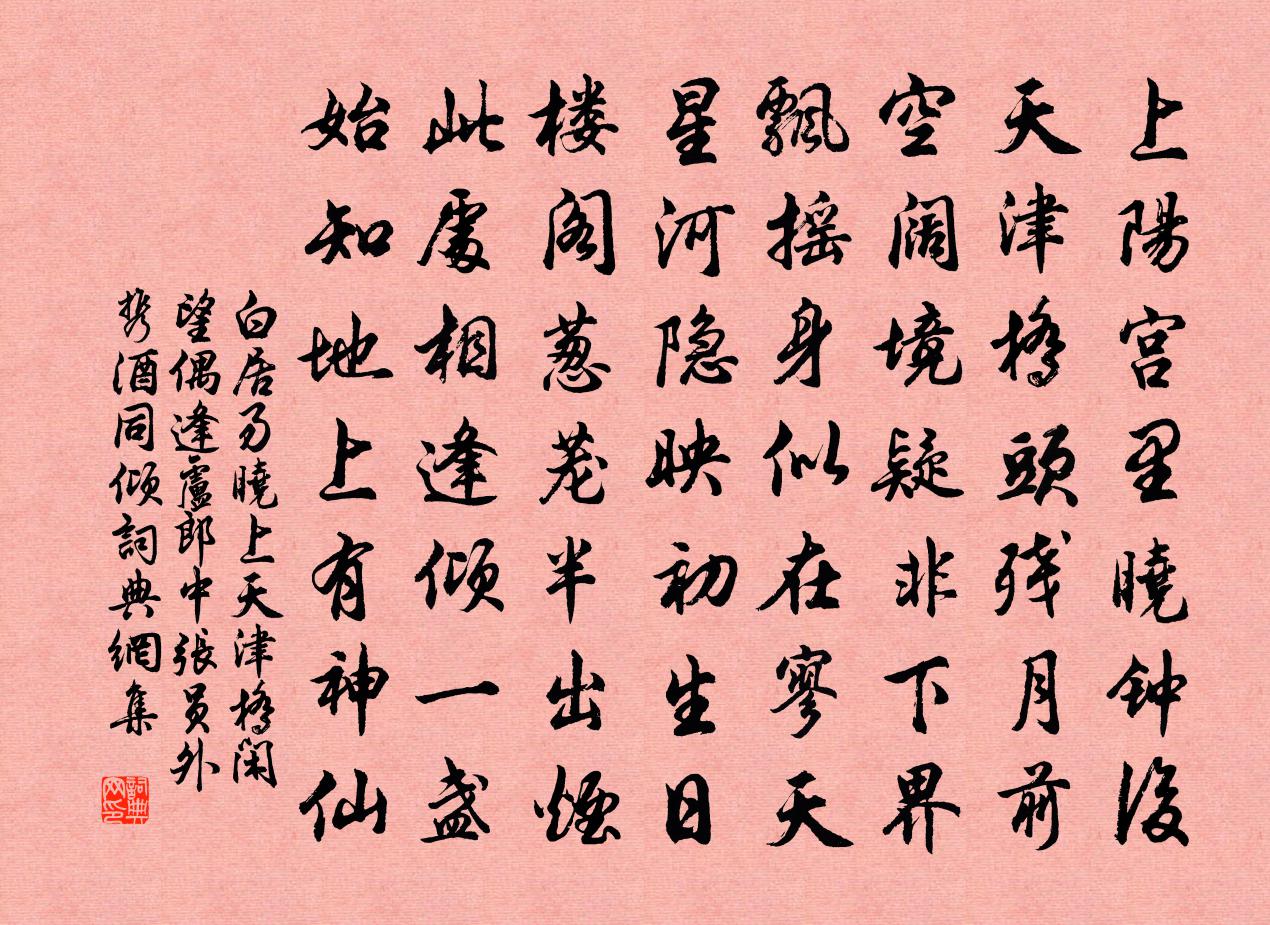 上陽宫里曉钟後
天津橋頭残月前
空阔境疑非下界
飄摇身似在寥天
星河隐映初生日
楼阁葱茏半出煙
此處相逢倾一盏
始知地上有神仙
白居易曉上天津橋闲
望偶逢盧郎中張员外
携酒同倾詞典網集
詞典网印